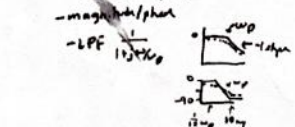 -magnitude/phase
-LPF 1
1+jω/ωp
0 ωp
-1 slope
0 ωp
-90
1/10 ωp 10ωp